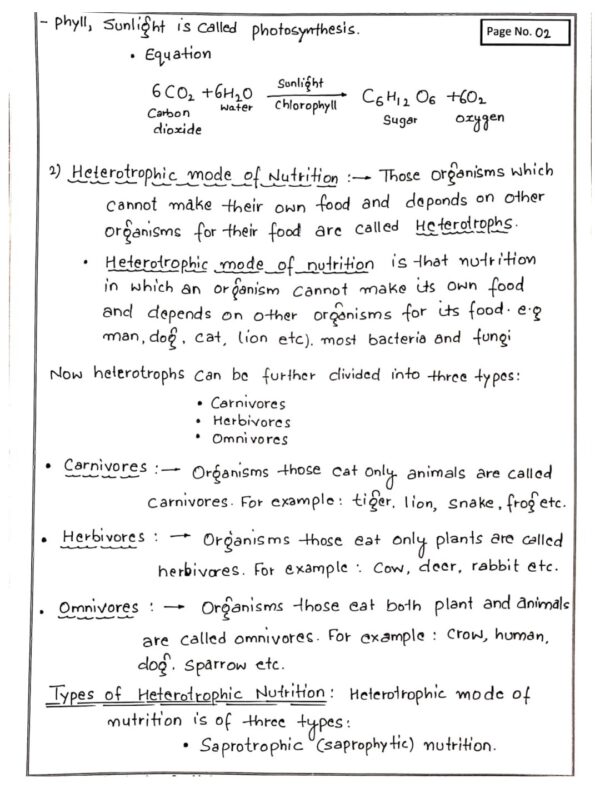 - phyll, Sunlight is called photosynthesis.
Page No. 02
• Equation
6CO₂ + 6H₂O Sunlight Chlorophyll → C₆H₁₂O₆ + 6O₂
Carbon dioxide Water Sugar oxygen
2) Heterotrophic mode of Nutrition :→ Those organisms which
cannot make their own food and depends on other
organisms for their food are called Heterotrophs.
• Heterotrophic mode of nutrition is that nutrition
in which an organism cannot make its own food
and depends on other organisms for its food. e.g
man, dog, cat, lion etc). most bacteria and fungi
Now heterotrophs can be further divided into three types:
• Carnivores
• Herbivores
• Omnivores
• Carnivores :→ Organisms those eat only animals are called
carnivores. For example: tiger, lion, snake, frog etc.
• Herbivores : → Organisms those eat only plants are called
herbivores. For example : Cow, deer, rabbit etc.
• Omnivores : → Organisms those eat both plant and animals
are called omnivores. For example : Crow, human,
dog, sparrow etc.
Types of Heterotrophic Nutrition: Heterotrophic mode of
nutrition is of three types:
• Saprotrophic (saprophytic) nutrition.